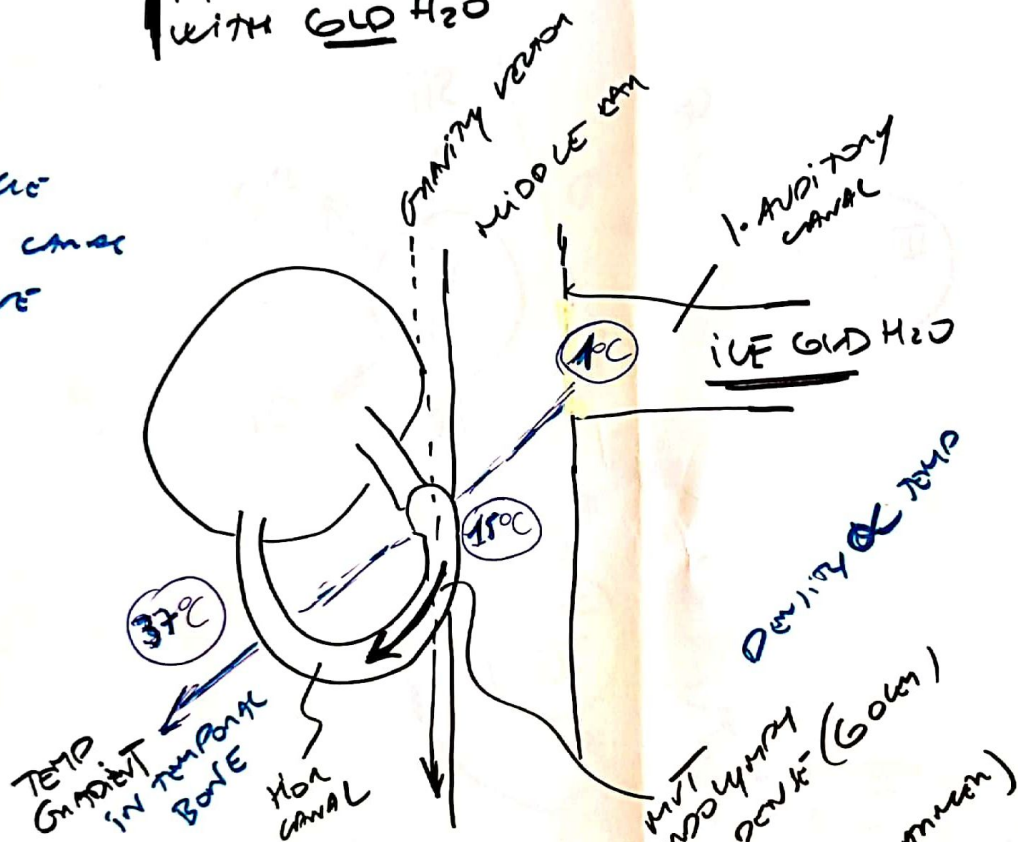 WITH COLD H2O
GRAVITY VECTOR
MIDDLE EAR
CANAL
1. AUDITORY
CANAL
1°C
ICE COLD H2O
15°C
37°C
DENSITY ∝ TEMP
TEMP
GRADIENT
IN TEMPORAL
BONE
HOR
CANAL
MVT
NDOLYMPH
DENSE (COLD)